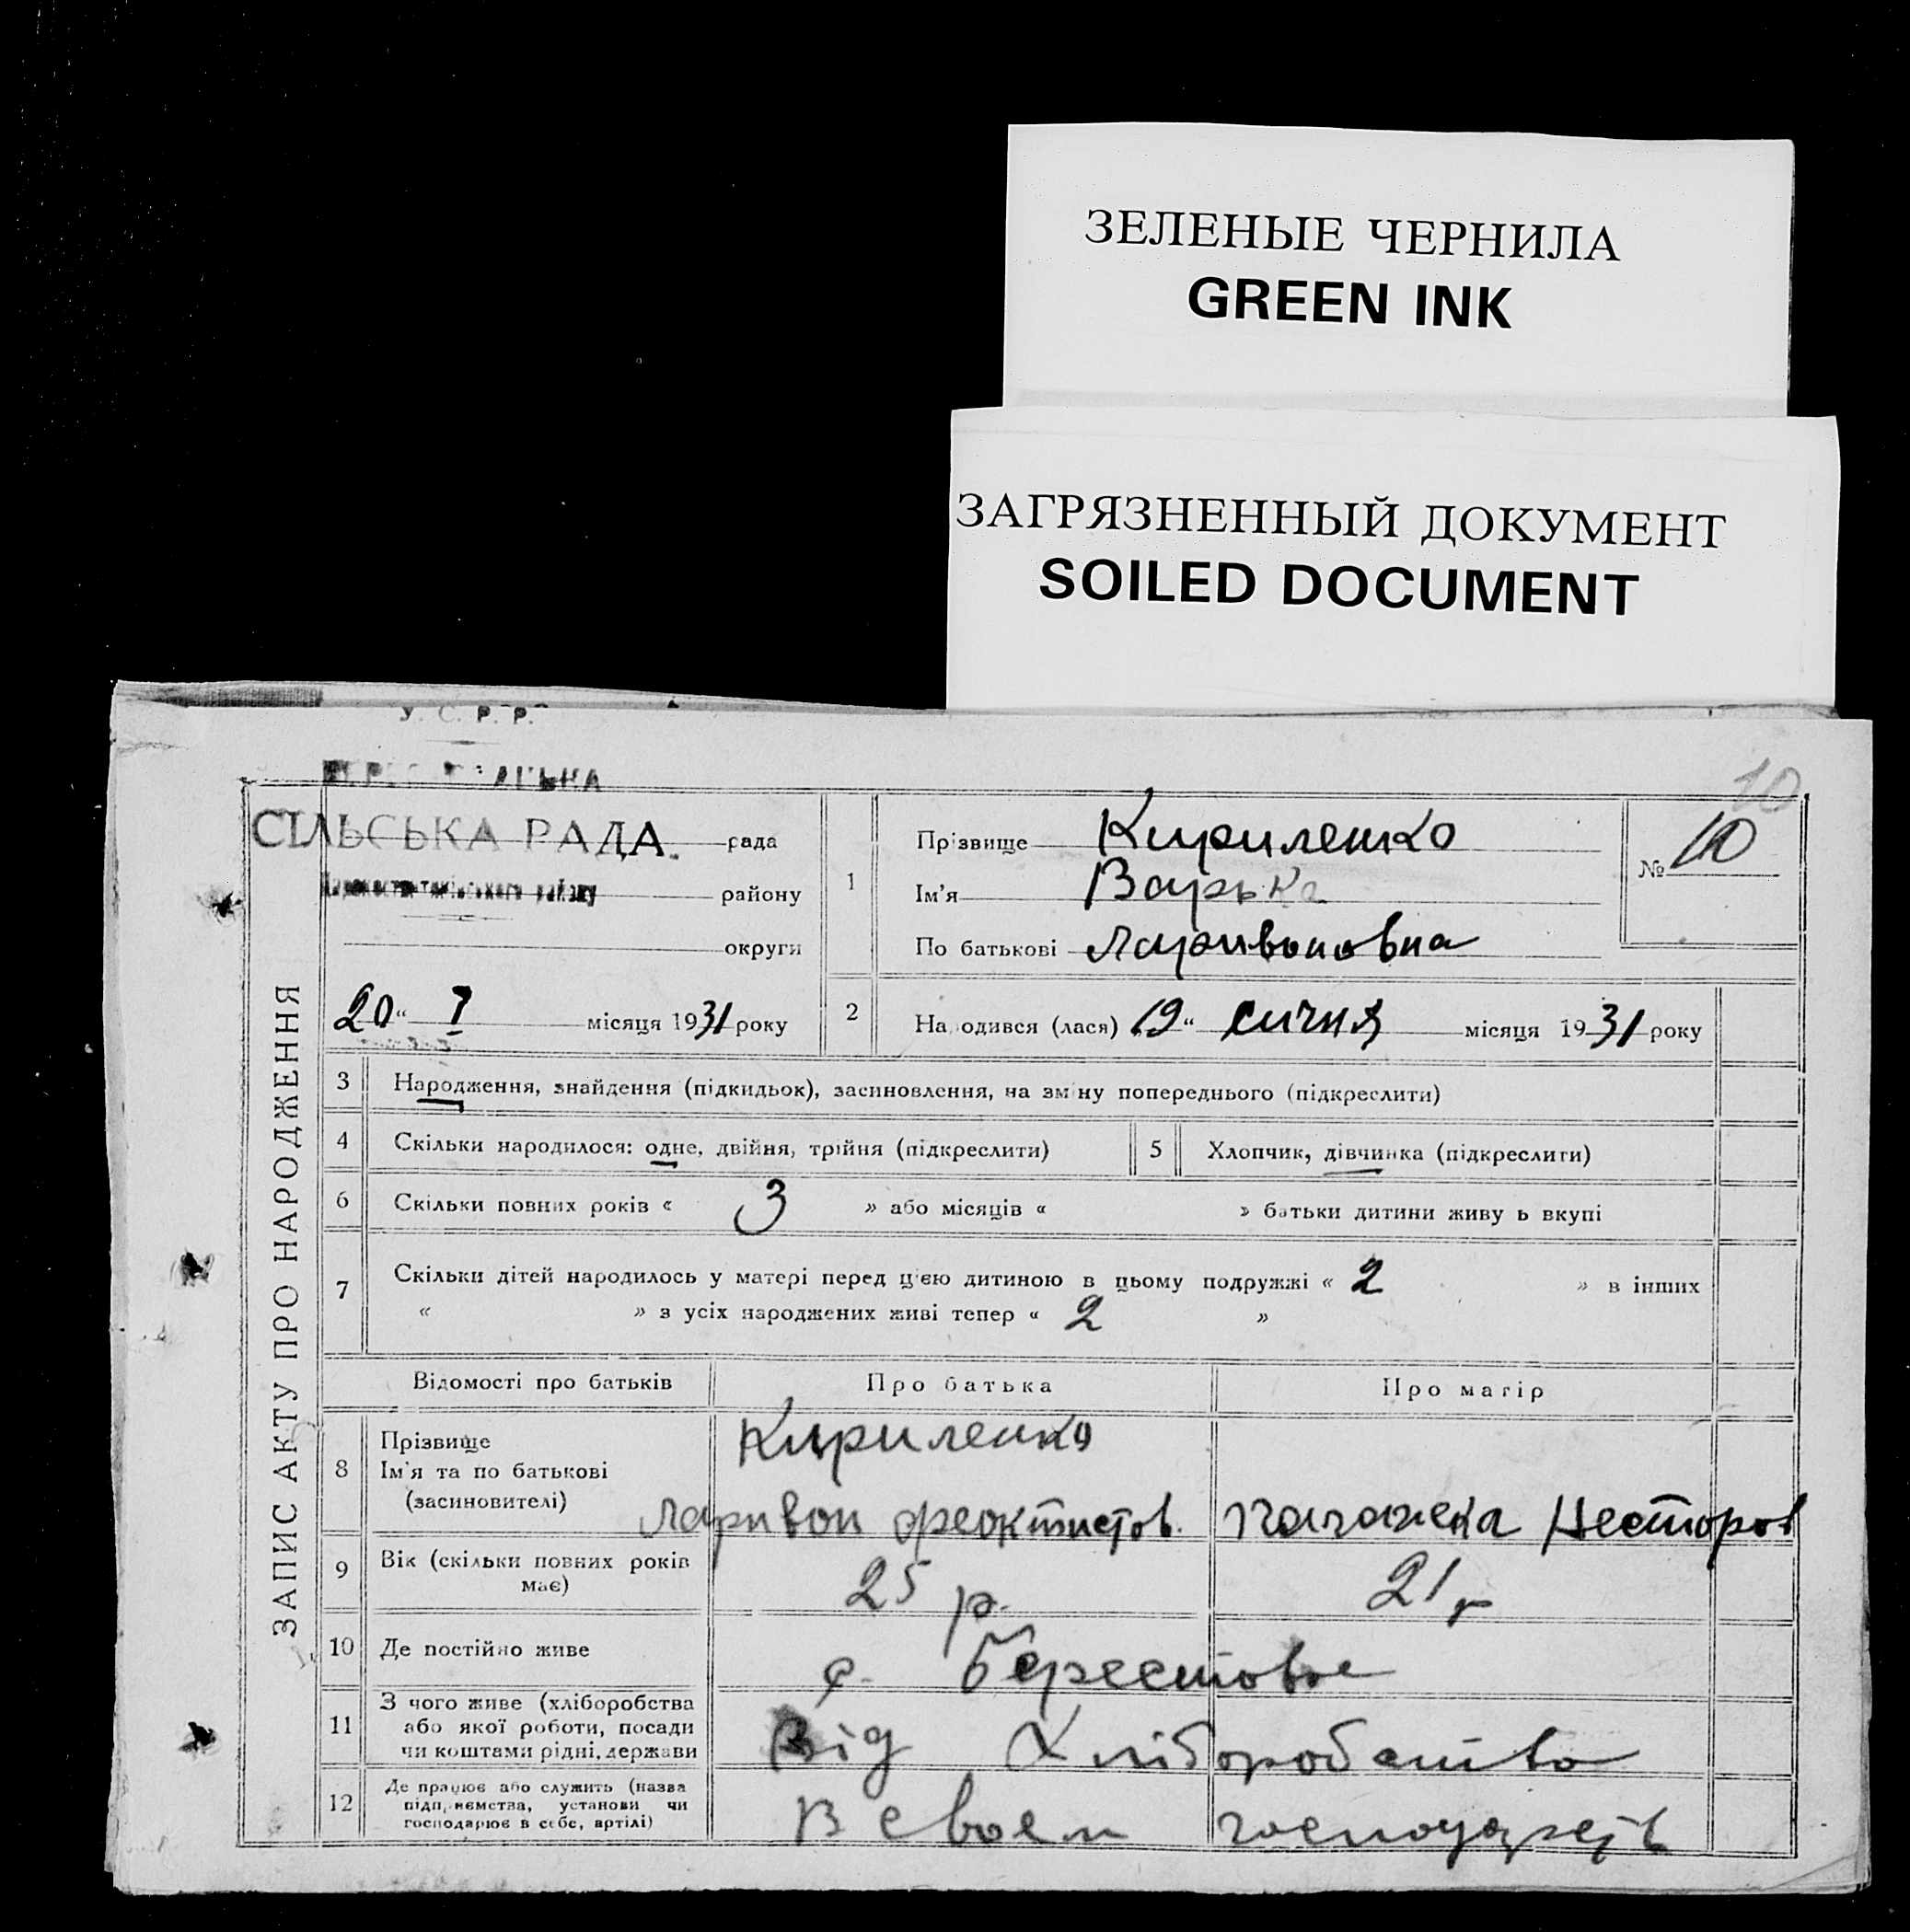 ЗЕЛЕНЫЕ ЧЕРНИЛА
GREEN INK
ЗАГРЯЗНЕННЫЙ ДОКУМЕНТ
SOILED DOCUMENT
У. С. Р. Р.
СІЛЬСЬКА РАДА. рада
району
округи
20 " I місяця 1931 року
ЗАПИС АКТУ ПРО НАРОДЖЕННЯ
10
№ 10
1 Прізвище Кириленко
Ім'я Варька
По батьковіЛаривоновна
2 Народився (лася) 19 " сичня місяця 1931 року
3 Народження, знайдення (підкидьок), засиновлення, на зміну попереднього (підкреслити)
4 Скільки народилося: одне, двійня, трійня (підкреслити) 5 Хлопчик, дівчинка (підкреслити)
6 Скільки повних років « 3 » або місяців « » батьки дитини живуть вкупі
7 Скільки дітей народилось у матері перед цією дитиною в цьому подружжі « 2 » в інших
« » з усіх народжених живі тепер « 2 »
Відомості про батьків Про батька Про матір
8 Прізвище Кириленко
Ім'я та по батькові
(засиновителі) Ларивон Феоктистов. Нестеров
9 Вік (скільки повних років 25 р. 21 р
має)
10 Де постійно живе с. Берестовое
11 З чого живе (хліборобства
або якої роботи, посади Від Хліборобства
чи коштами рідні, держави
12 Де працює або служить (назва
підприємства, установи чи В своем
господарює в себе, артілі)